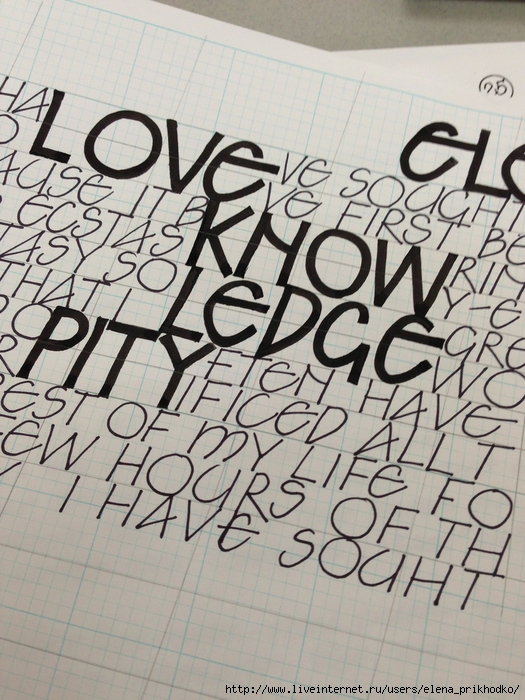 HA LOVE VE SOUGHT ELO
O
AUSE IT B VE FIRST BE
ECSTAS KNOW RIN
TASY SO Y-E
THAT I LEDGE GRE
WO
PITY FTEN HAVE
IFICED ALL T
EST OF MY LIFE FO
EW HOURS OF TH
I HAVE SOUHT
http://www.liveinternet.ru/users/elena_prikhodko/